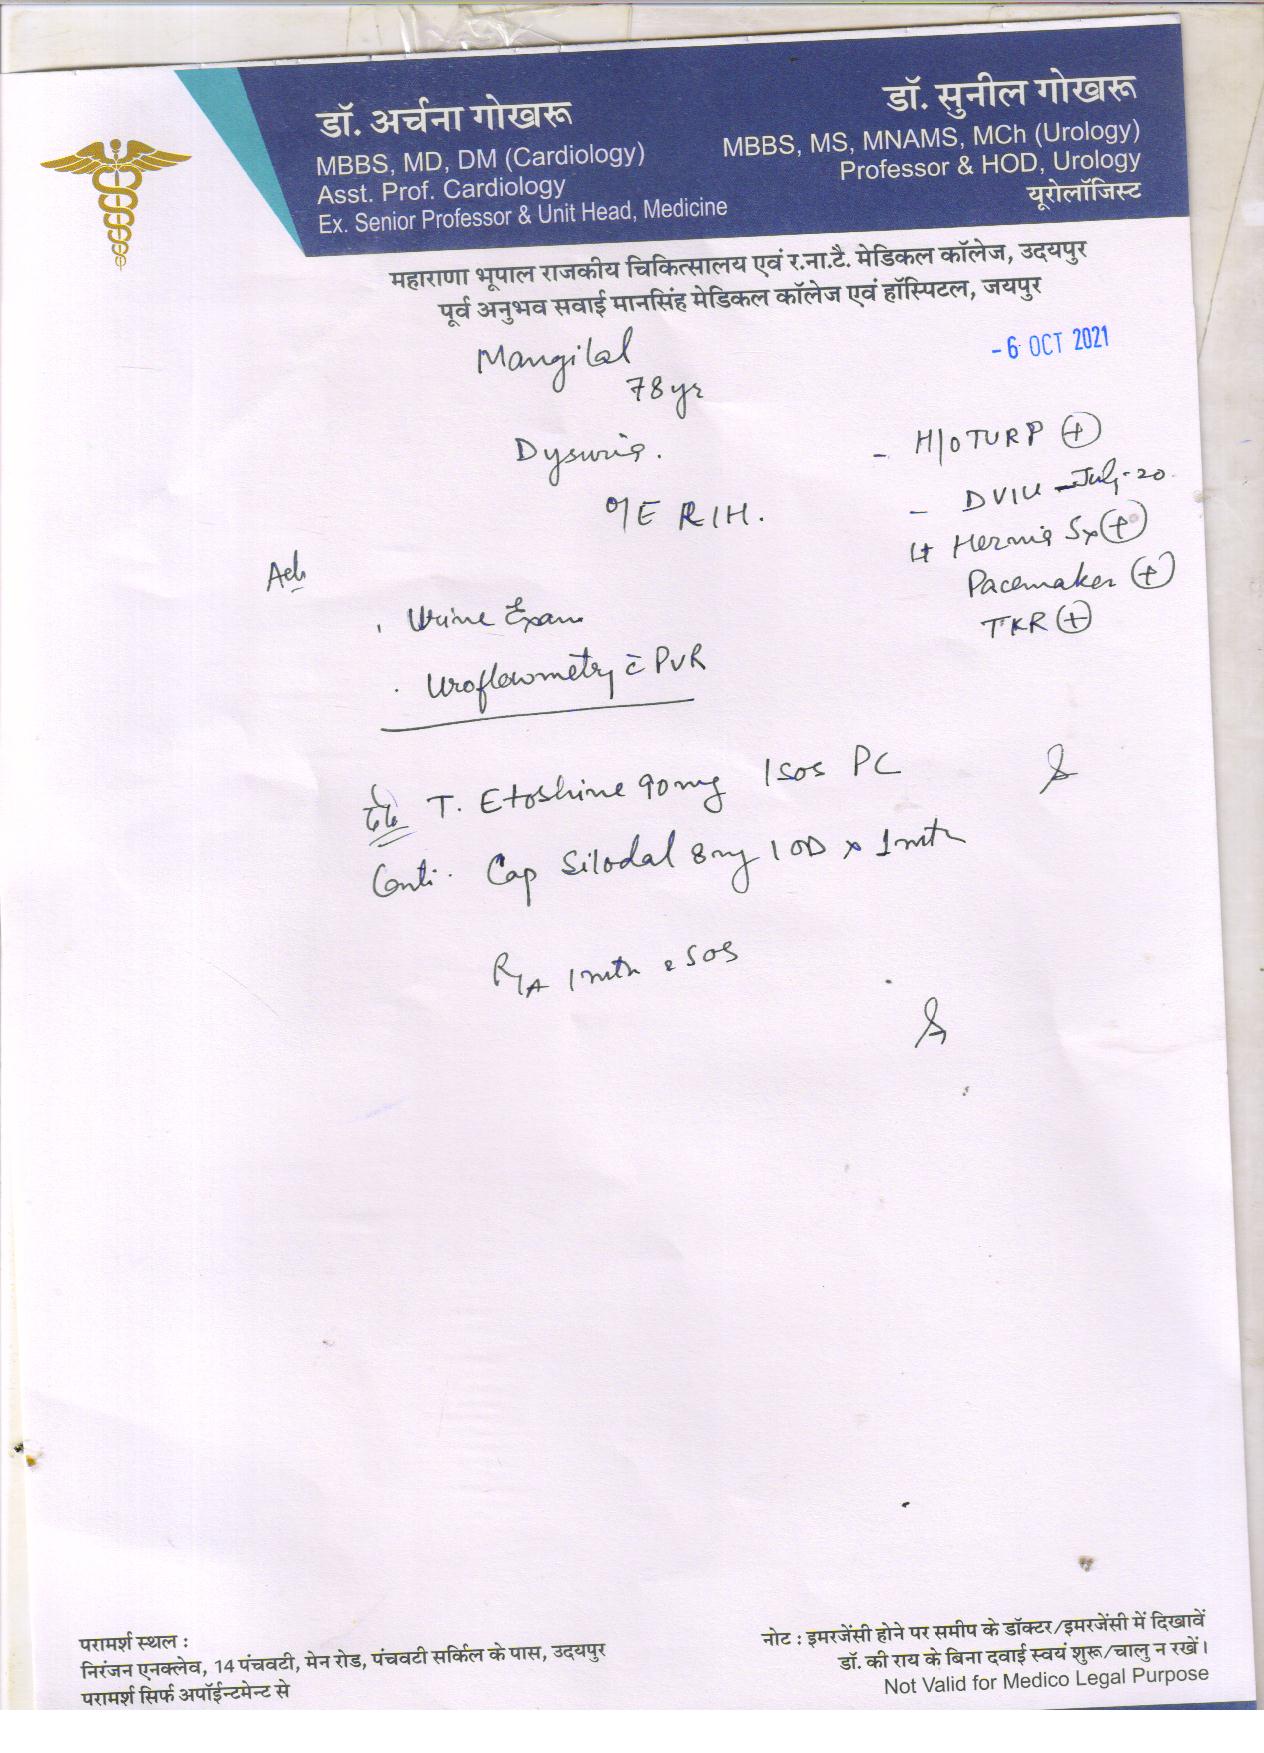 डॉ. अर्चना गोखरू
MBBS, MD, DM (Cardiology)
Asst. Prof. Cardiology
Ex. Senior Professor & Unit Head, Medicine
डॉ. सुनील गोखरू
MBBS, MS, MNAMS, MCh (Urology)
Professor & HOD, Urology
यूरोलॉजिस्ट
महाराणा भूपाल राजकीय चिकित्सालय एवं र.ना.टै. मेडिकल कॉलेज, उदयपुर
पूर्व अनुभव सवाई मानसिंह मेडिकल कॉलेज एवं हॉस्पिटल, जयपुर
- 6 OCT 2021
Mangilal
78 yr
Dysuria.
O/E RIH.
- H/o TURP +
- DVIU - July-20
Hernia Sx +
Pacemaker +
TKR +
Adv
. Urine Exam
. Uroflowmetry c̄ PVR
दर्द T. Etoshine 90mg 1 SOS PC
Conti. Cap Silodal 8mg 1 OD x 1 mth
R/A 1 mth SOS
परामर्श स्थल :
निरंजन एनक्लेव, 14 पंचवटी, मेन रोड, पंचवटी सर्किल के पास, उदयपुर
परामर्श सिर्फ अपॉईन्टमेन्ट से
नोट : इमरजेंसी होने पर समीप के डॉक्टर/इमरजेंसी में दिखावें
डॉ. की राय के बिना दवाई स्वयं शुरू/चालु न रखें।
Not Valid for Medico Legal Purpose